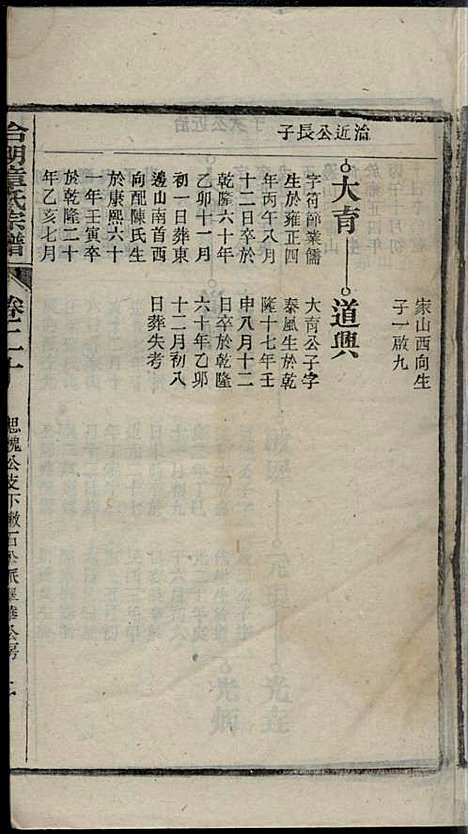 家山西向生
子一啟九
治近公長子
大育
道興
字符節業儒
生於雍正四
年丙午八月
十二日卒於
乾隆六十年
乙卯十一月
初一日葬東
邊山南首西
向配陳氏生
於康熙六十
一年壬寅卒
於乾隆二十
年乙亥七月
大育公子字
秦風生於乾
隆十七年壬
申八月十二
日卒於乾隆
六十年乙卯
十二月初八
日葬失考
合湖章氏宗譜
卷二十
思槐公支下